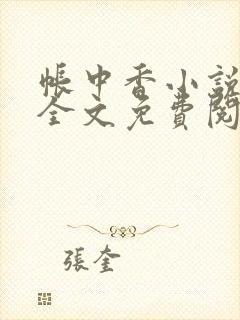 帳中香小說
全文免費閱
張奎